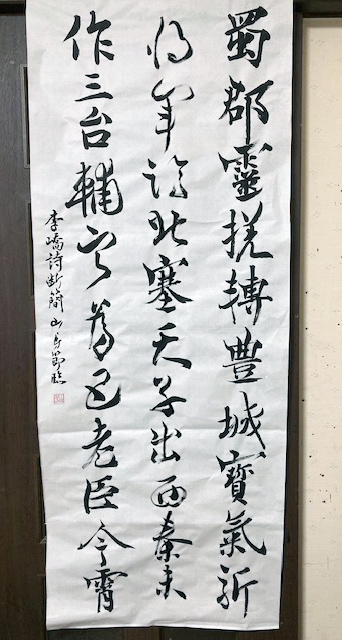 蜀郡靈槎轉豐城寶氣新
將軍臨北塞天子出西秦未
作三台輔寧為五老臣今宵
李嶠詩断簡 臨